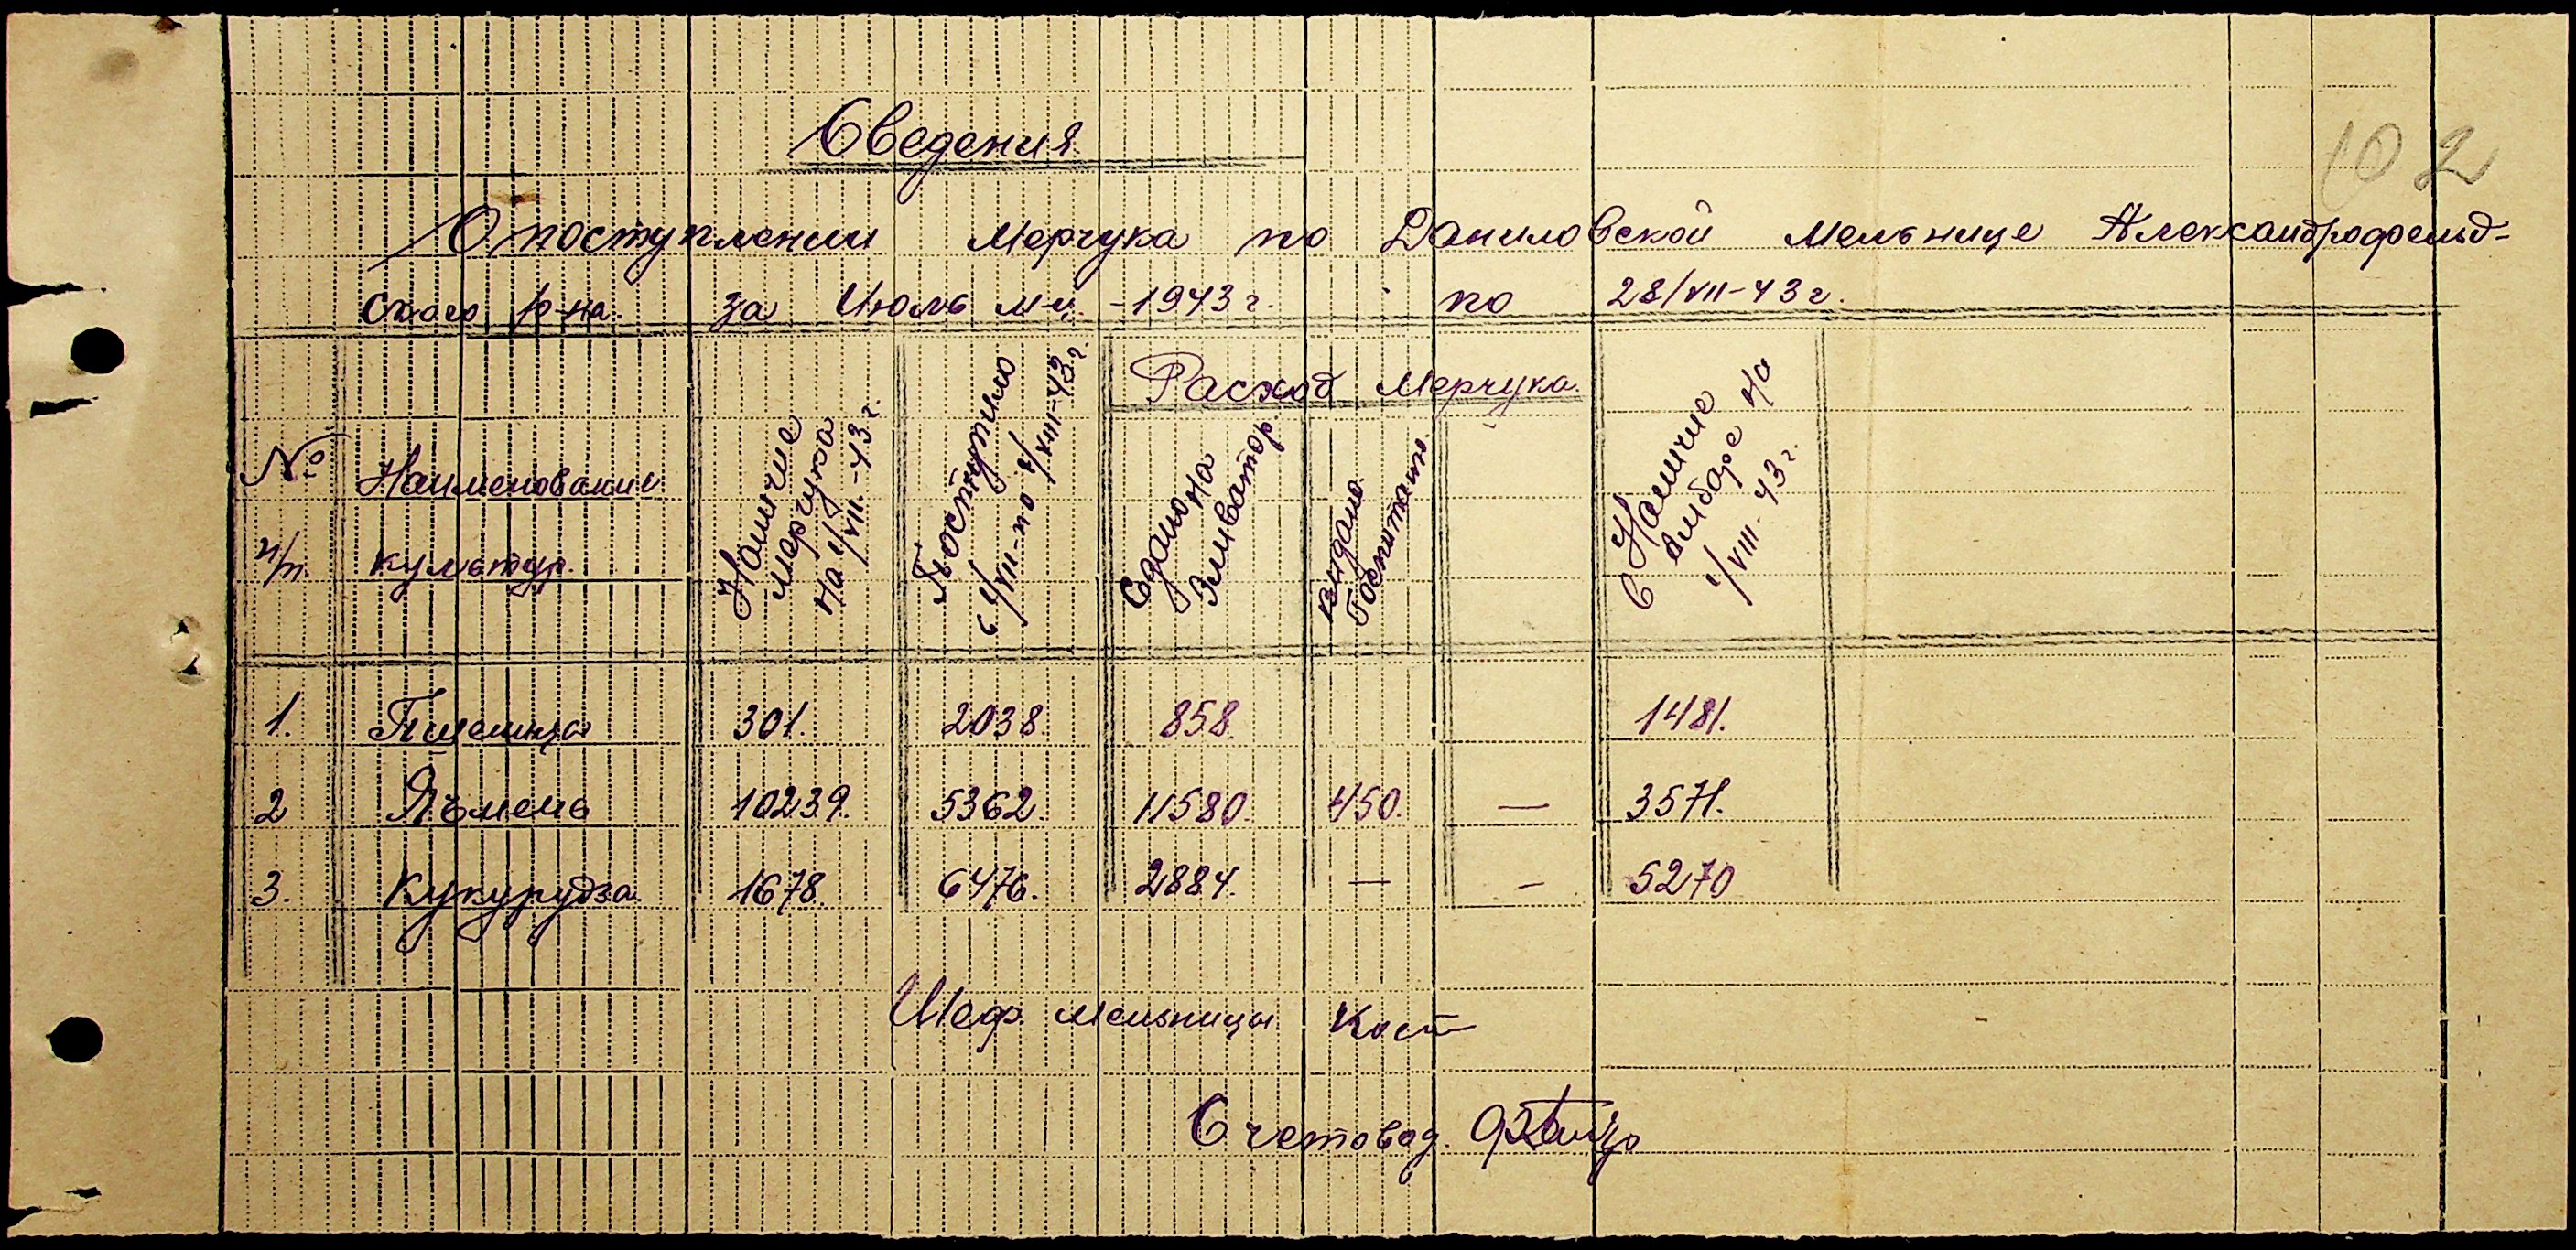 102
Сведения
О поступлении Мерчука по Даниловской Мельнице Александрофельд-
ского р-на. за Июль м-ц. -1943 г. по 28/VII-43 г.
№ п/п.
Наименование культур
Наличие мерчука на 1/VII.-43 г.
Поступило с 1/VII-по 1/VIII-43 г.
Расход Мерчука.
Сдано на Элеватор
Выдано
Наличие в Амбаре на 1/VIII-43 г.
1. Пшеница 301. 2038. 858. 1481.
2 Ячмень 10239. 5362. 11580. 450. — 3571.
3. Кукурудза 1678. 6476. 2884. — - 5270
Шеф. мельницы Кост
Счетовод.